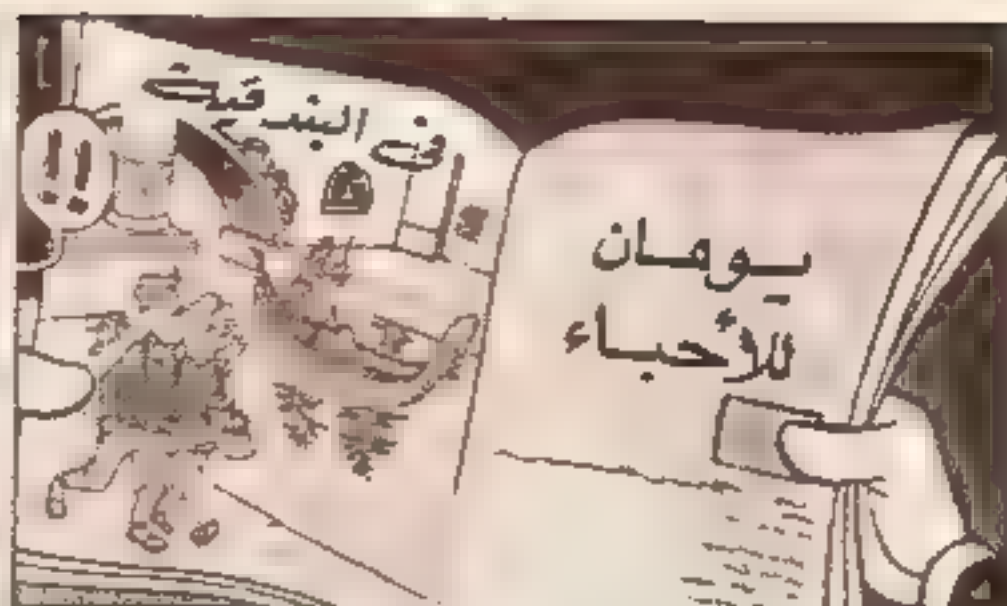 يـومـان
للأحبـاء
في البندقية
!!